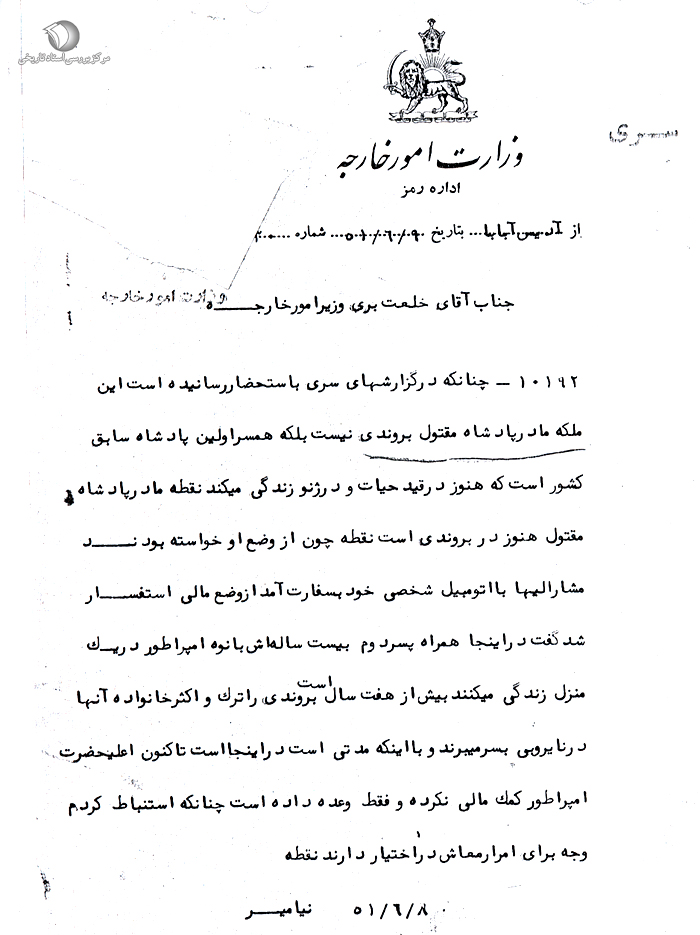 مرکز بررسی اسناد تاریخی
سری
وزارت امور خارجه
اداره رمز
از آدیس آبابا... بتاریخ ۵۱/۶/۹۰... شماره
وزارت امور خارجه
جناب آقای خلعت بری وزیر امور خارجــــه
۱۰۱۹۲ – چنانکه در گزارشهای سری باستحضار رسانیده است این
ملکه مادر پادشاه مقتول بروندی نیست بلکه همسر اولین پادشاه سابق
کشور است که هنوز در قید حیات و در ژنو زندگی میکند نقطه مادر پادشاه
مقتول هنوز در بروندی است نقطه چون از وضع او خواسته بودنـــــد
مشارالیها با اتومبیل شخصی خود بسفارت آمد از وضع مالی استفســـار
شد گفت در اینجا همراه پسر دوم بیست ساله‌اش با نوه امپراطور در یک
منزل زندگی میکنند بیش از هفت سال است بروندی را ترک و اکثر خانواده آنها
در نایروبی بسر میبرند و با اینکه مدتی است در اینجا است تاکنون اعلیحضرت
امپراطور کمک مالی نکرده و فقط وعده داده است چنانکه استنباط کردم
وجه برای امرار معاش در اختیار دارند نقطه
۵۱/۶/۸ نیامیــر